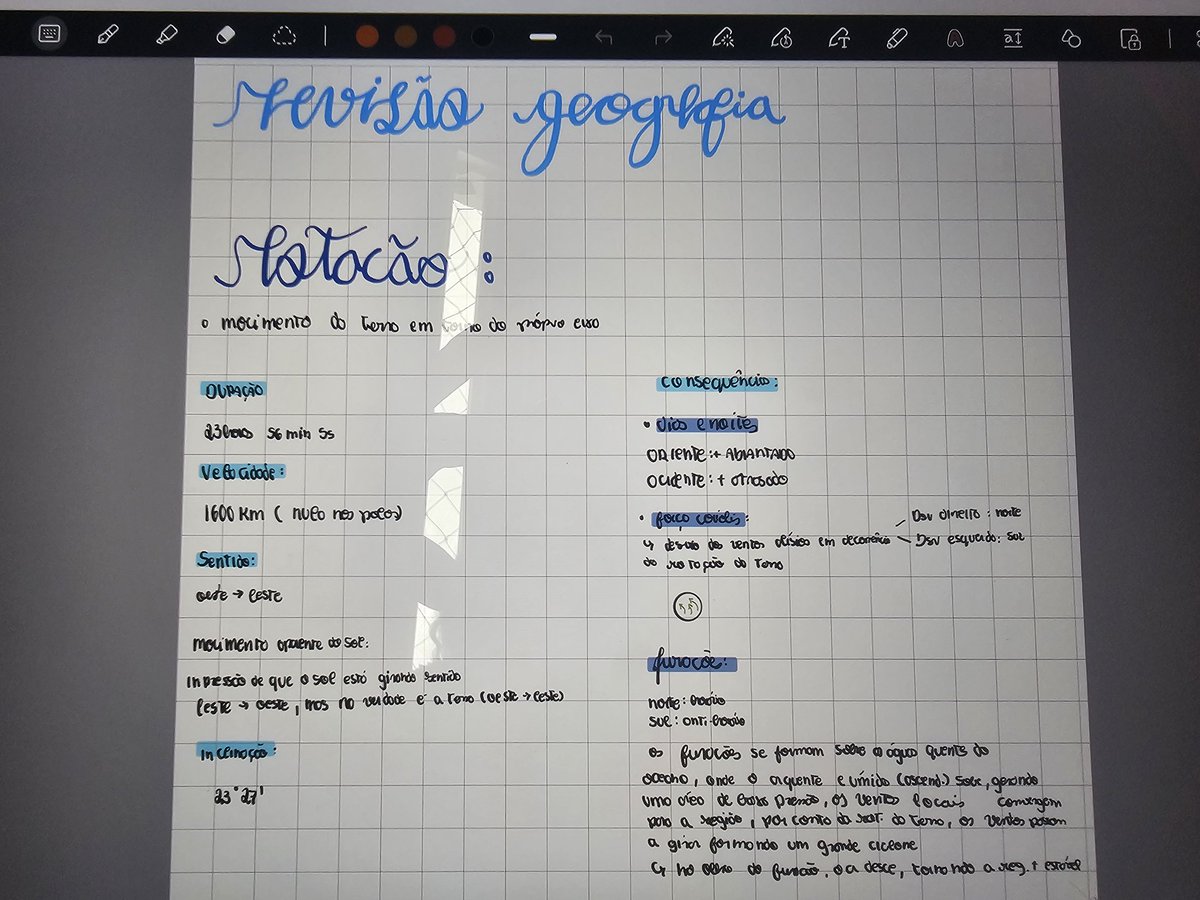 revisão geografia
Rotacão :
movimento da terra em torno do próprio eixo
DURAÇÃO
23horas 56 min 5s
Velocidade:
1600 Km ( nulo nos polos)
Sentido:
oeste → leste
movimento aparente do sol:
impressão de que o sol está girando sentido
leste → oeste, mas na verdade é a terra (oeste → leste)
Inclinação:
23° 27'
consequência:
• dias e noites
ORIENTE: + ADIANTADO
ocidente: + atrasado
• força coriolis:
↳ desvio dos ventos alísios em decorrência
da rotação da terra
Dsv direito: norte
Dsv esquerdo: sul
furacõe:
norte: horário
sul: anti-horário
os furacões se formam sobre a água quente do
oceano, onde o ar quente e úmido (ascend.) sobe, gerando
uma área de baixa pressão, os ventos locais convergem
para a região, por conta da rot. da terra, os ventos passam
a girar formando um grande ciclone
↳ no olho do furacão, o a desce, tornando a reg. + estável